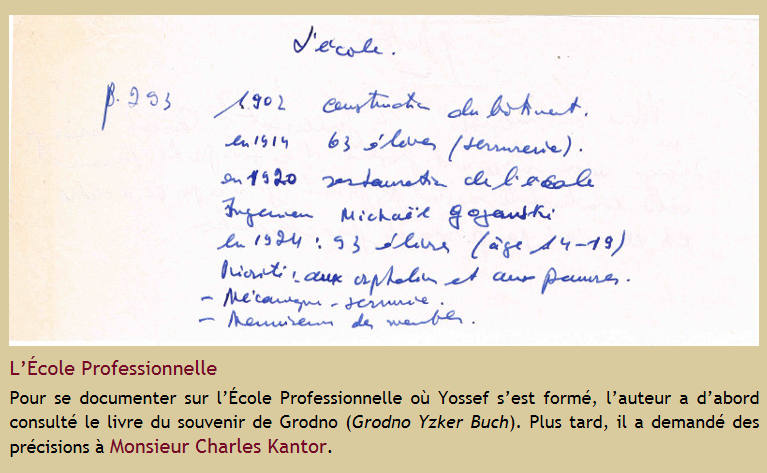 L'école.
p. 293 1902 construction du bâtiment.
en 1914 63 élèves (serrurerie).
en 1920 restauration de l'école
Ingénieur Michaël Gojanski
en 1924 : 93 élèves (âge 14-19)
Priorité : aux orphelins et aux pauvres.
- Mécanique - serrurerie.
- Menuiserie des meubles.
L'École Professionnelle
Pour se documenter sur l'École Professionnelle où Yossef s'est formé, l'auteur a d'abord
consulté le livre du souvenir de Grodno (Grodno Yzker Buch). Plus tard, il a demandé des
précisions à Monsieur Charles Kantor.